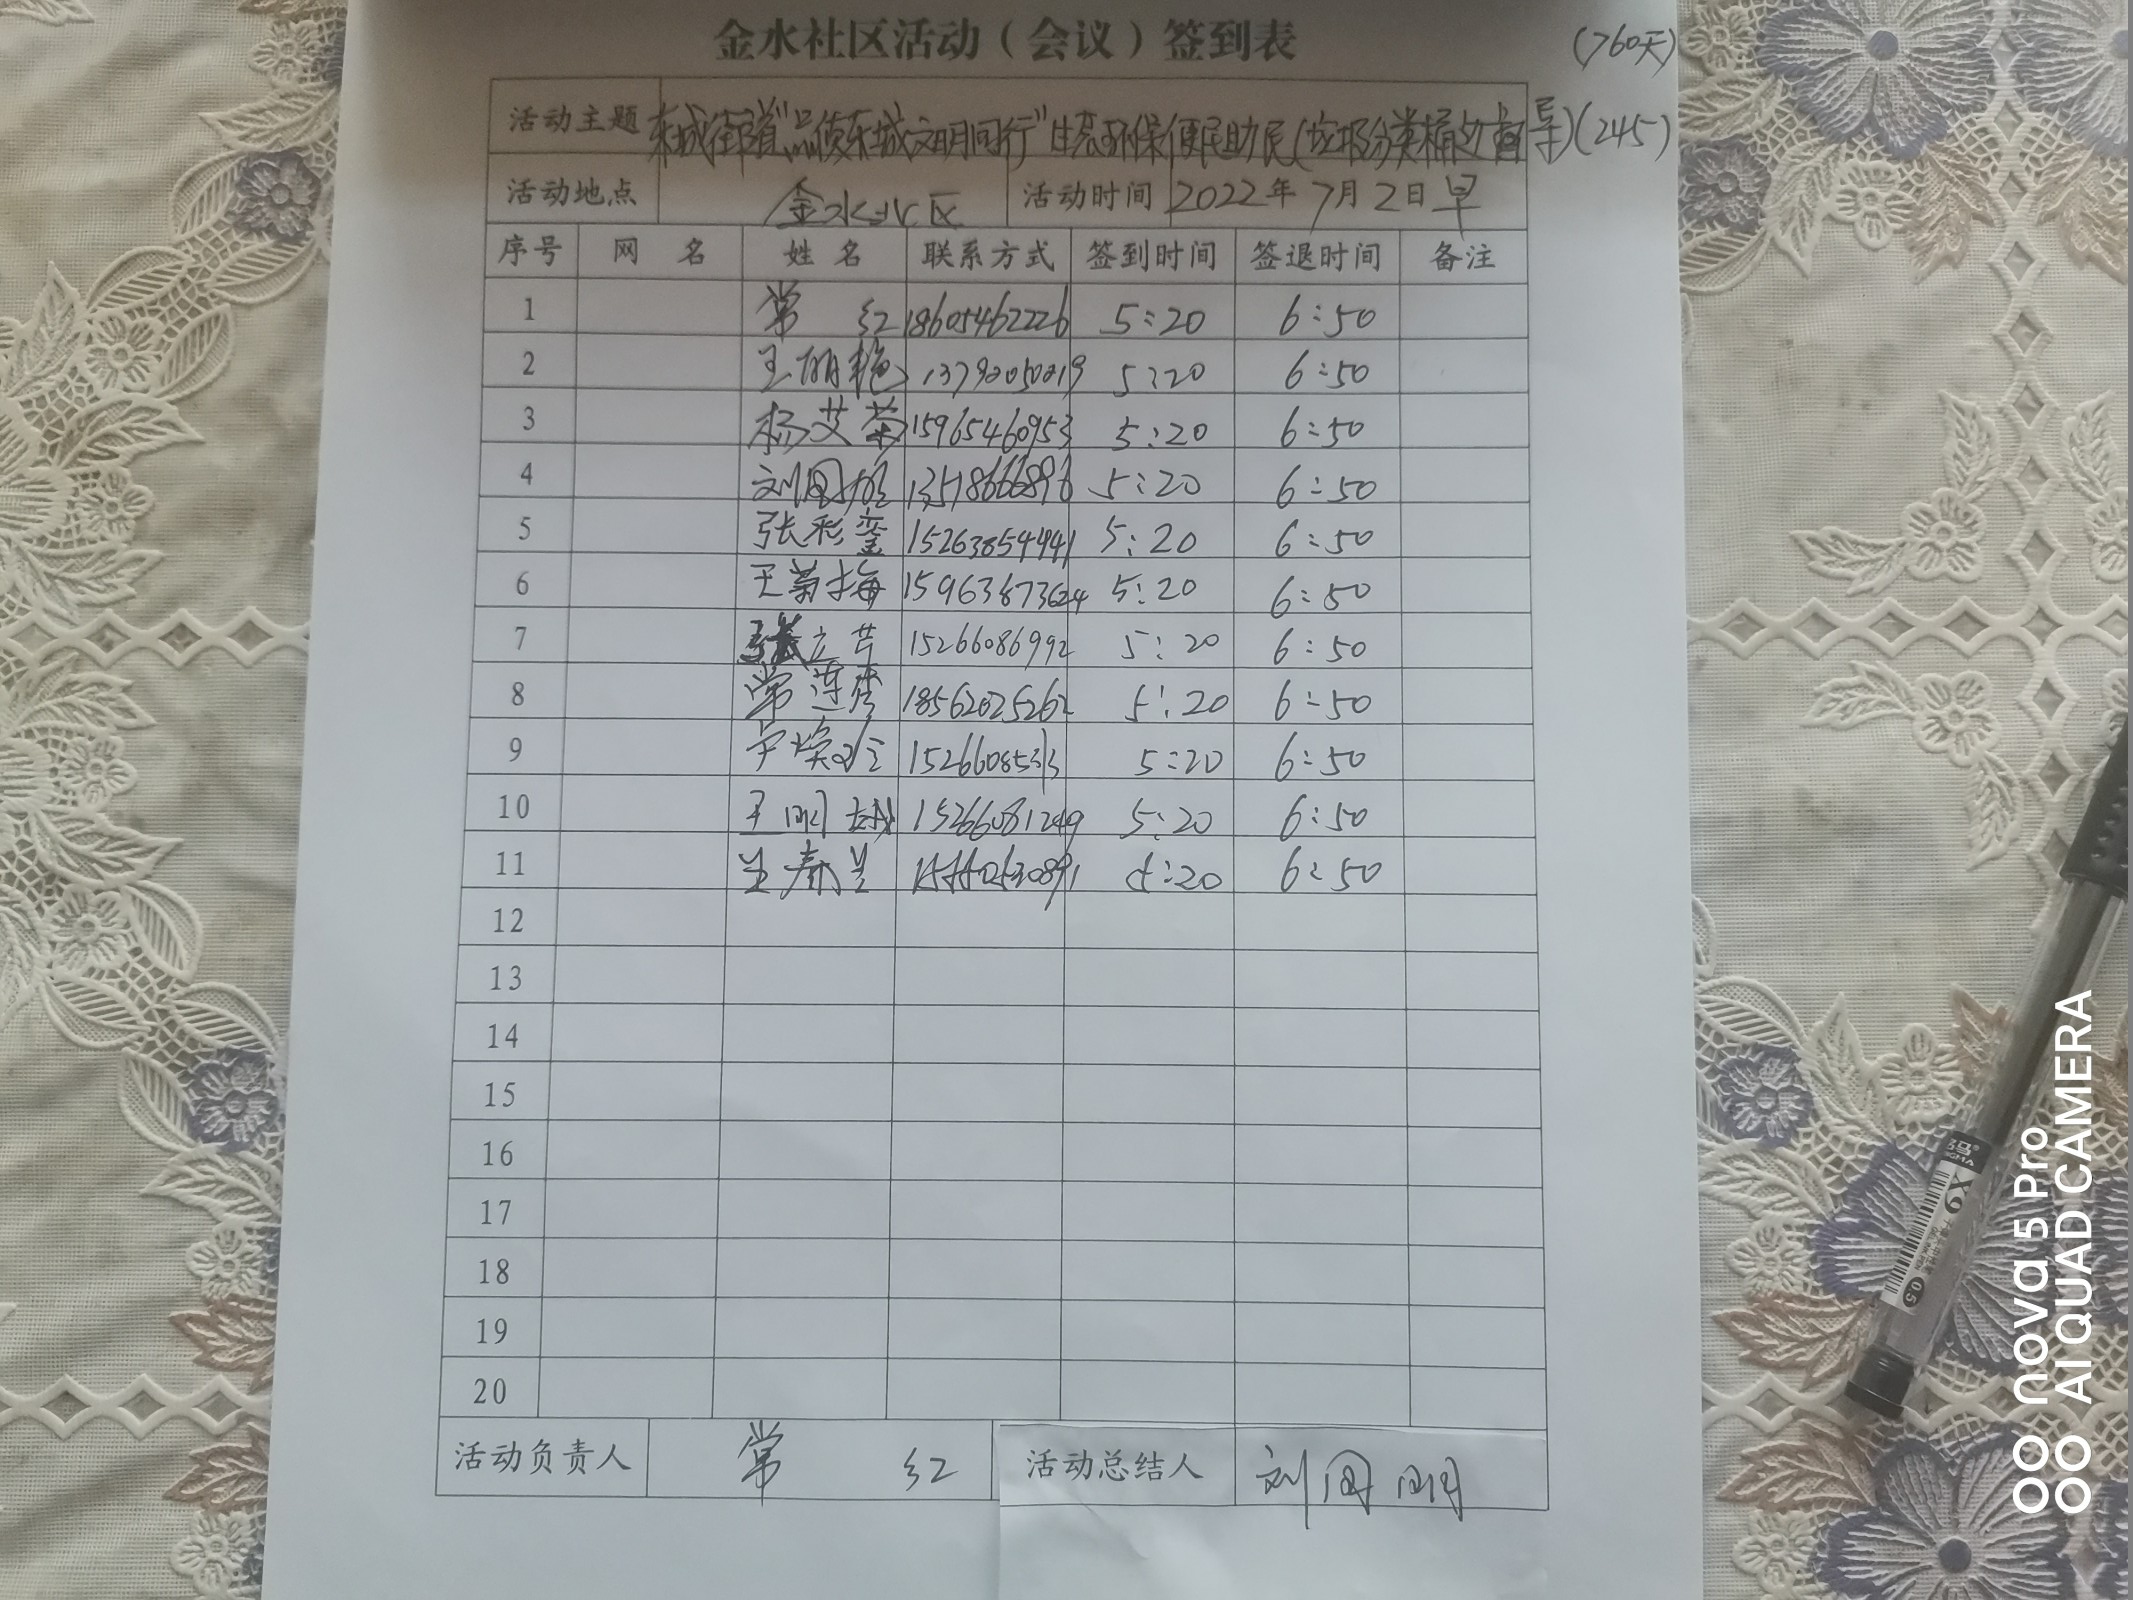 金水社区活动（会议）签到表 (760天)
活动主题 东城街道"品质东城文明同行"生态环保便民助民(垃圾分类桶边督导)(245)
活动地点 金水北区 活动时间 2022年7月2日早
序号 网 名 姓 名 联系方式 签到时间 签退时间 备注
1 常 红 18605462226 5:20 6:50
2 王丽艳 5:20 6:50
3 杨艾荣 15965460953 5:20 6:50
4 刘国明 5:20 6:50
5 张彩銮 15263854441 5:20 6:50
6 王菊梅 15963673624 5:20 6:50
7 张立芹 15266086992 5:20 6:50
8 常莲秀 18562025262 5:20 6:50
9 5:20 6:50
10 王 15266081249 5:20 6:50
11 春兰 5:20 6:50
12
13
14
15
16
17
18
19
20
活动负责人 常 红 活动总结人 刘国明
X9
0.5
nova 5 Pro
AI QUAD CAMERA